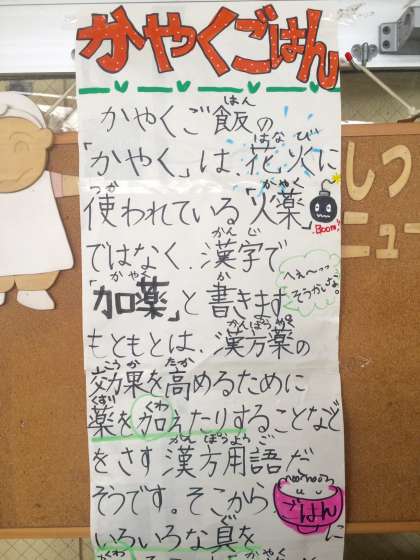 かやくごはん
かやくご飯の
はん
「かやく」は、花火に
はなび
使われている「火薬」
つか
かやく
Boom!!
ではなく、漢字で
かんじ
「加薬」と書きます
かやく
か
へぇ～っっ
そうかぃな。
もともとは、漢方薬の
かんぽうやく
効果を高めるために
こうか
たか
薬を加えたりすることなど
くすり
くわ
をさす漢方用語だ
かんぽうようご
そうです。そこから
ごはん
いろいろな具を
ぐ
に
くわ
しつ
ニュー